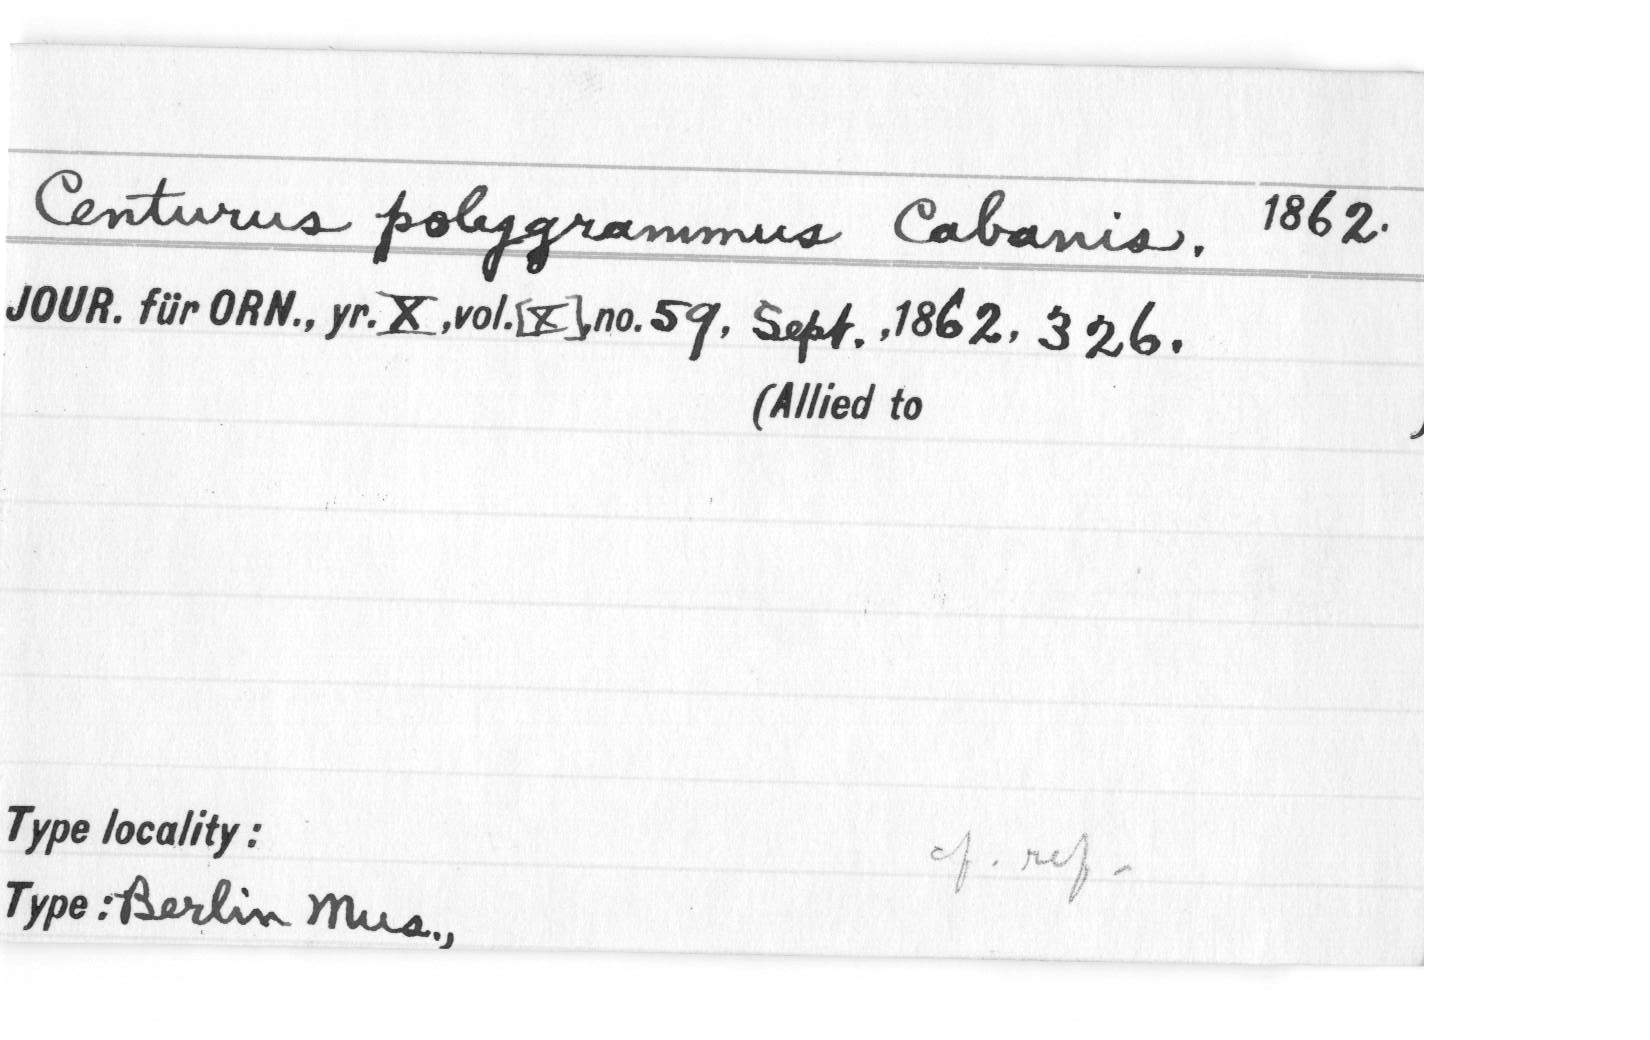 Centurus polygrammus Cabanis. 1862.
JOUR. für ORN., yr. X, vol. [X], no. 59, Sept., 1862, 326.
(Allied to )
Type locality:
cf. ref.
Type: Berlin Mus.,